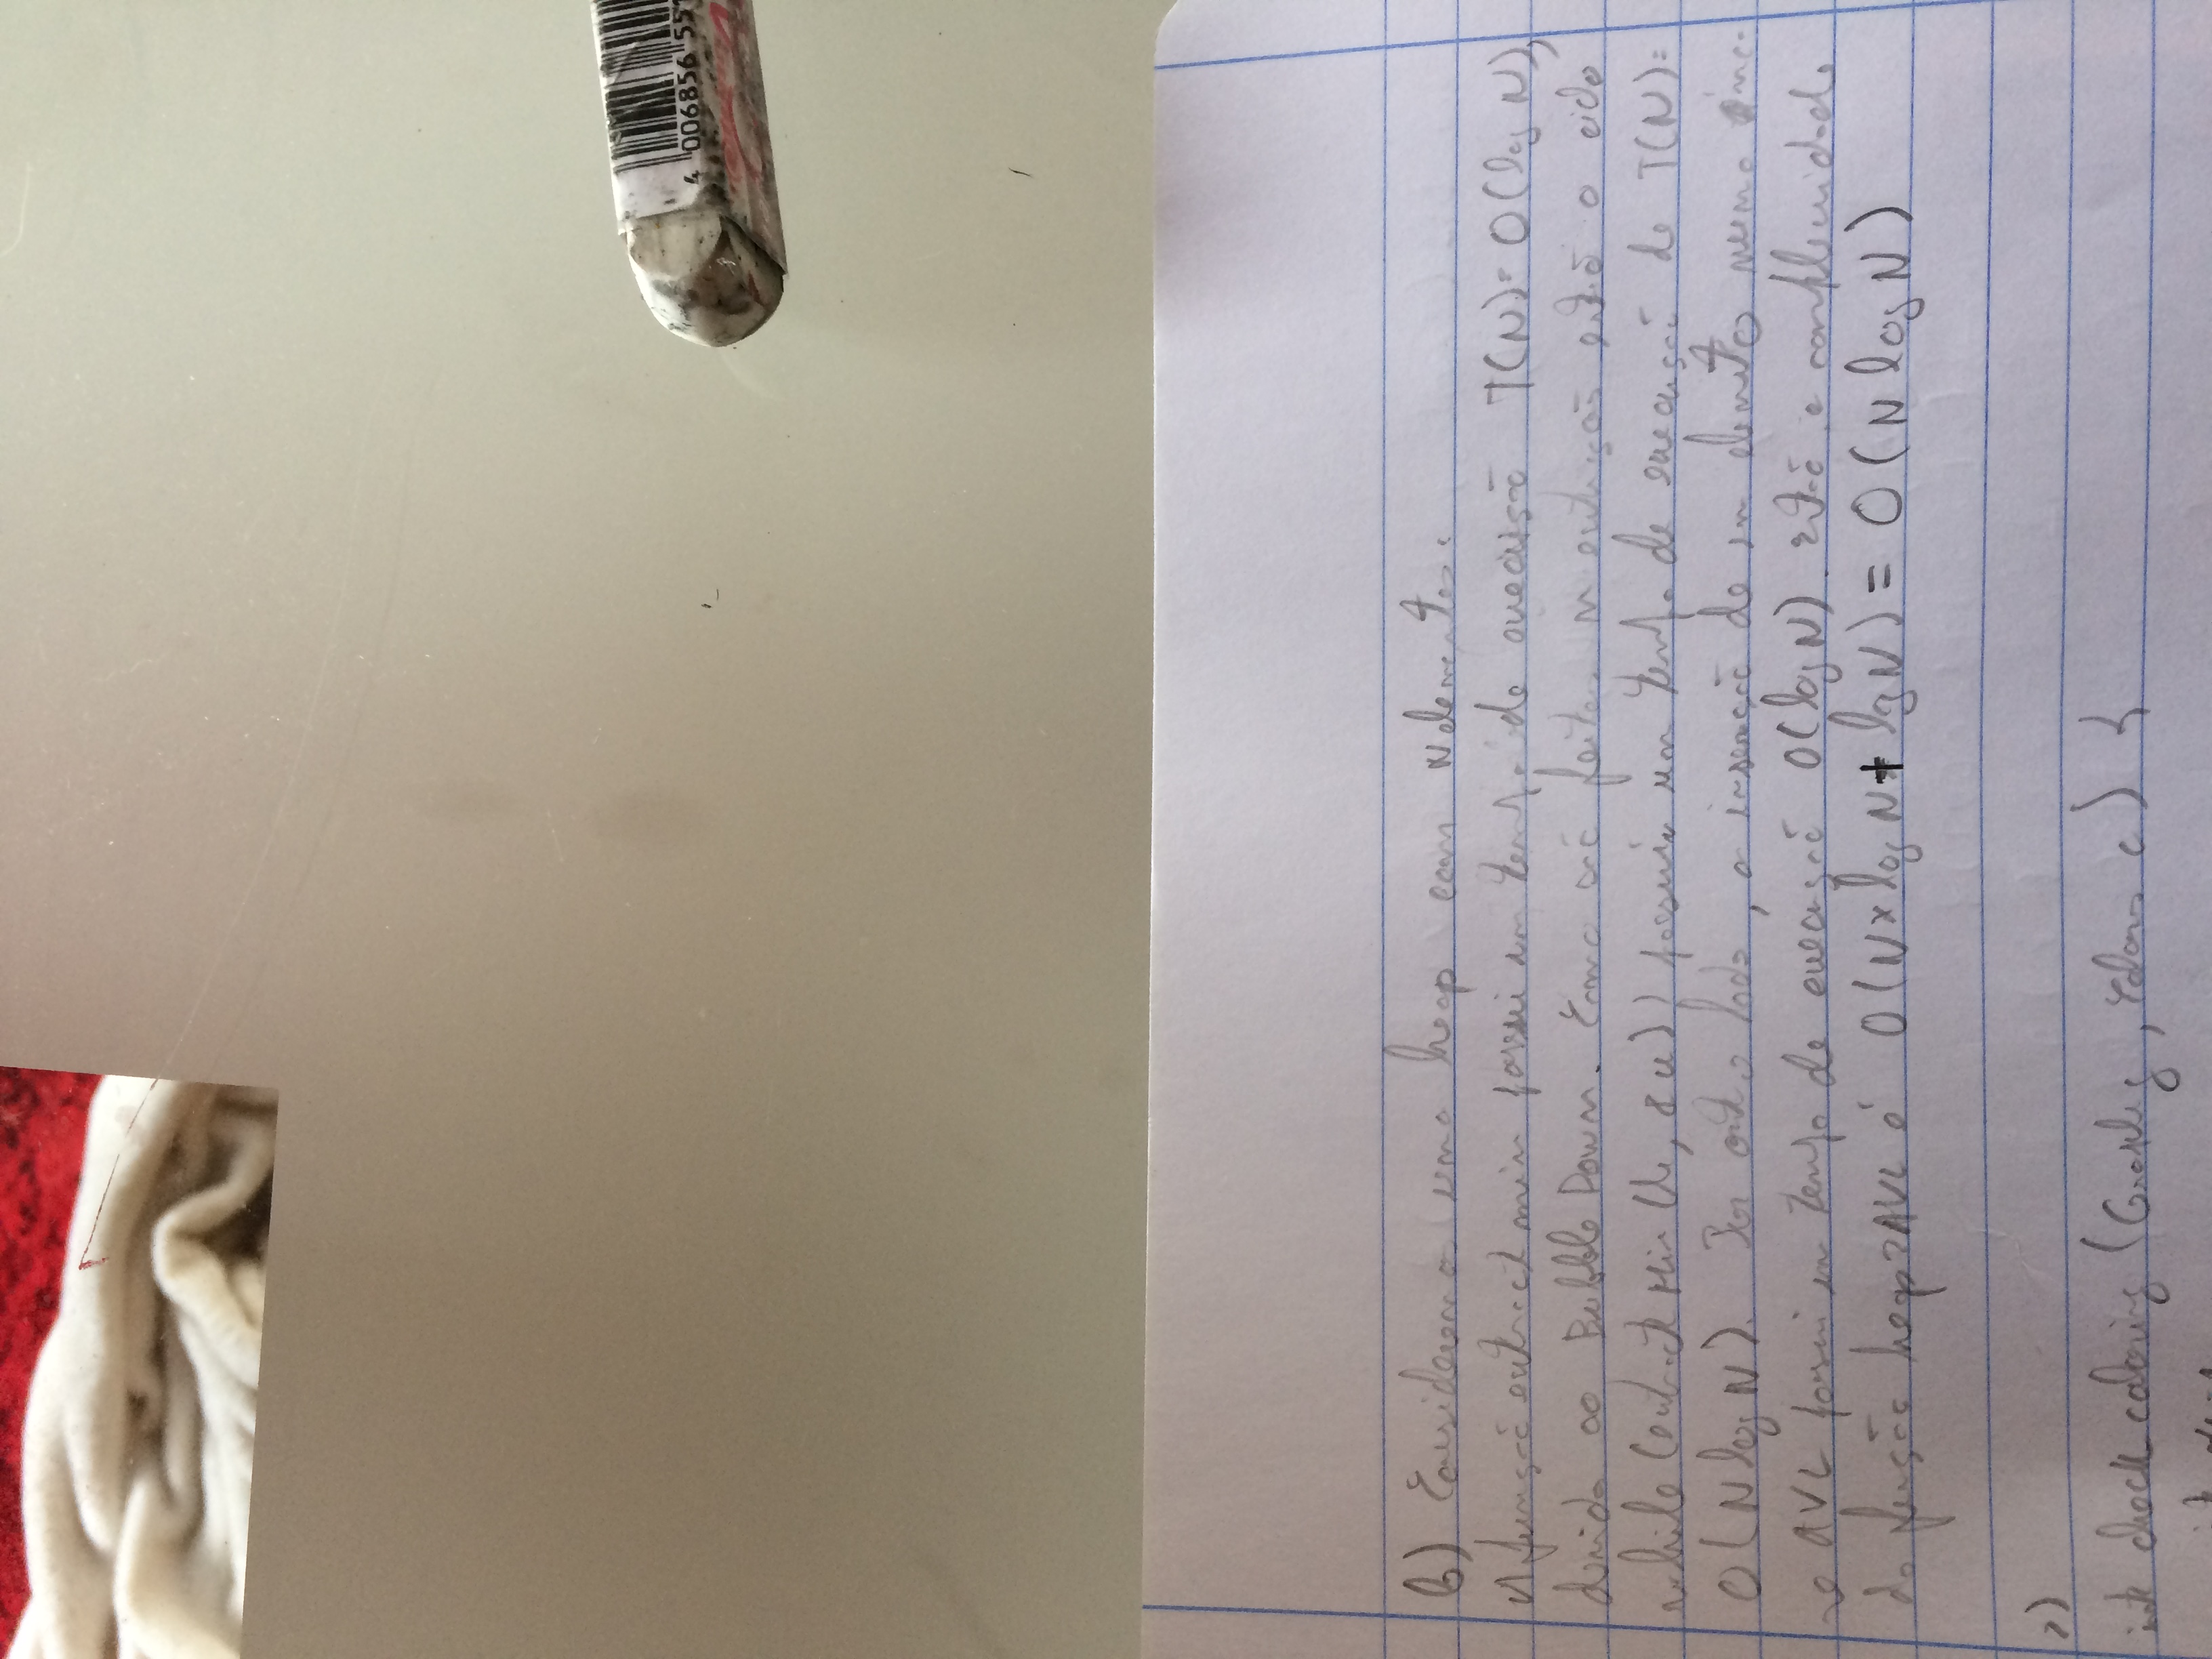 4 006856 551
b) Consideremos uma heap com N elementos:
A função extract min possui um tempo de execução T(N) = O(log N),
devido ao Bubble Down. Como são feitas N extrações então o ciclo
while (extract Min (h, &u)) possuirá um tempo de execução de T(N) =
O(N log N). Por outro lado, a inserção de um elemento numa árvo-
re AVL possui um tempo de execução O(log N). então a complexidade
da função heap2AVL é O(N x log N + log N) = O(N log N)
2)
int check coloring (Graph g, Colors c) {